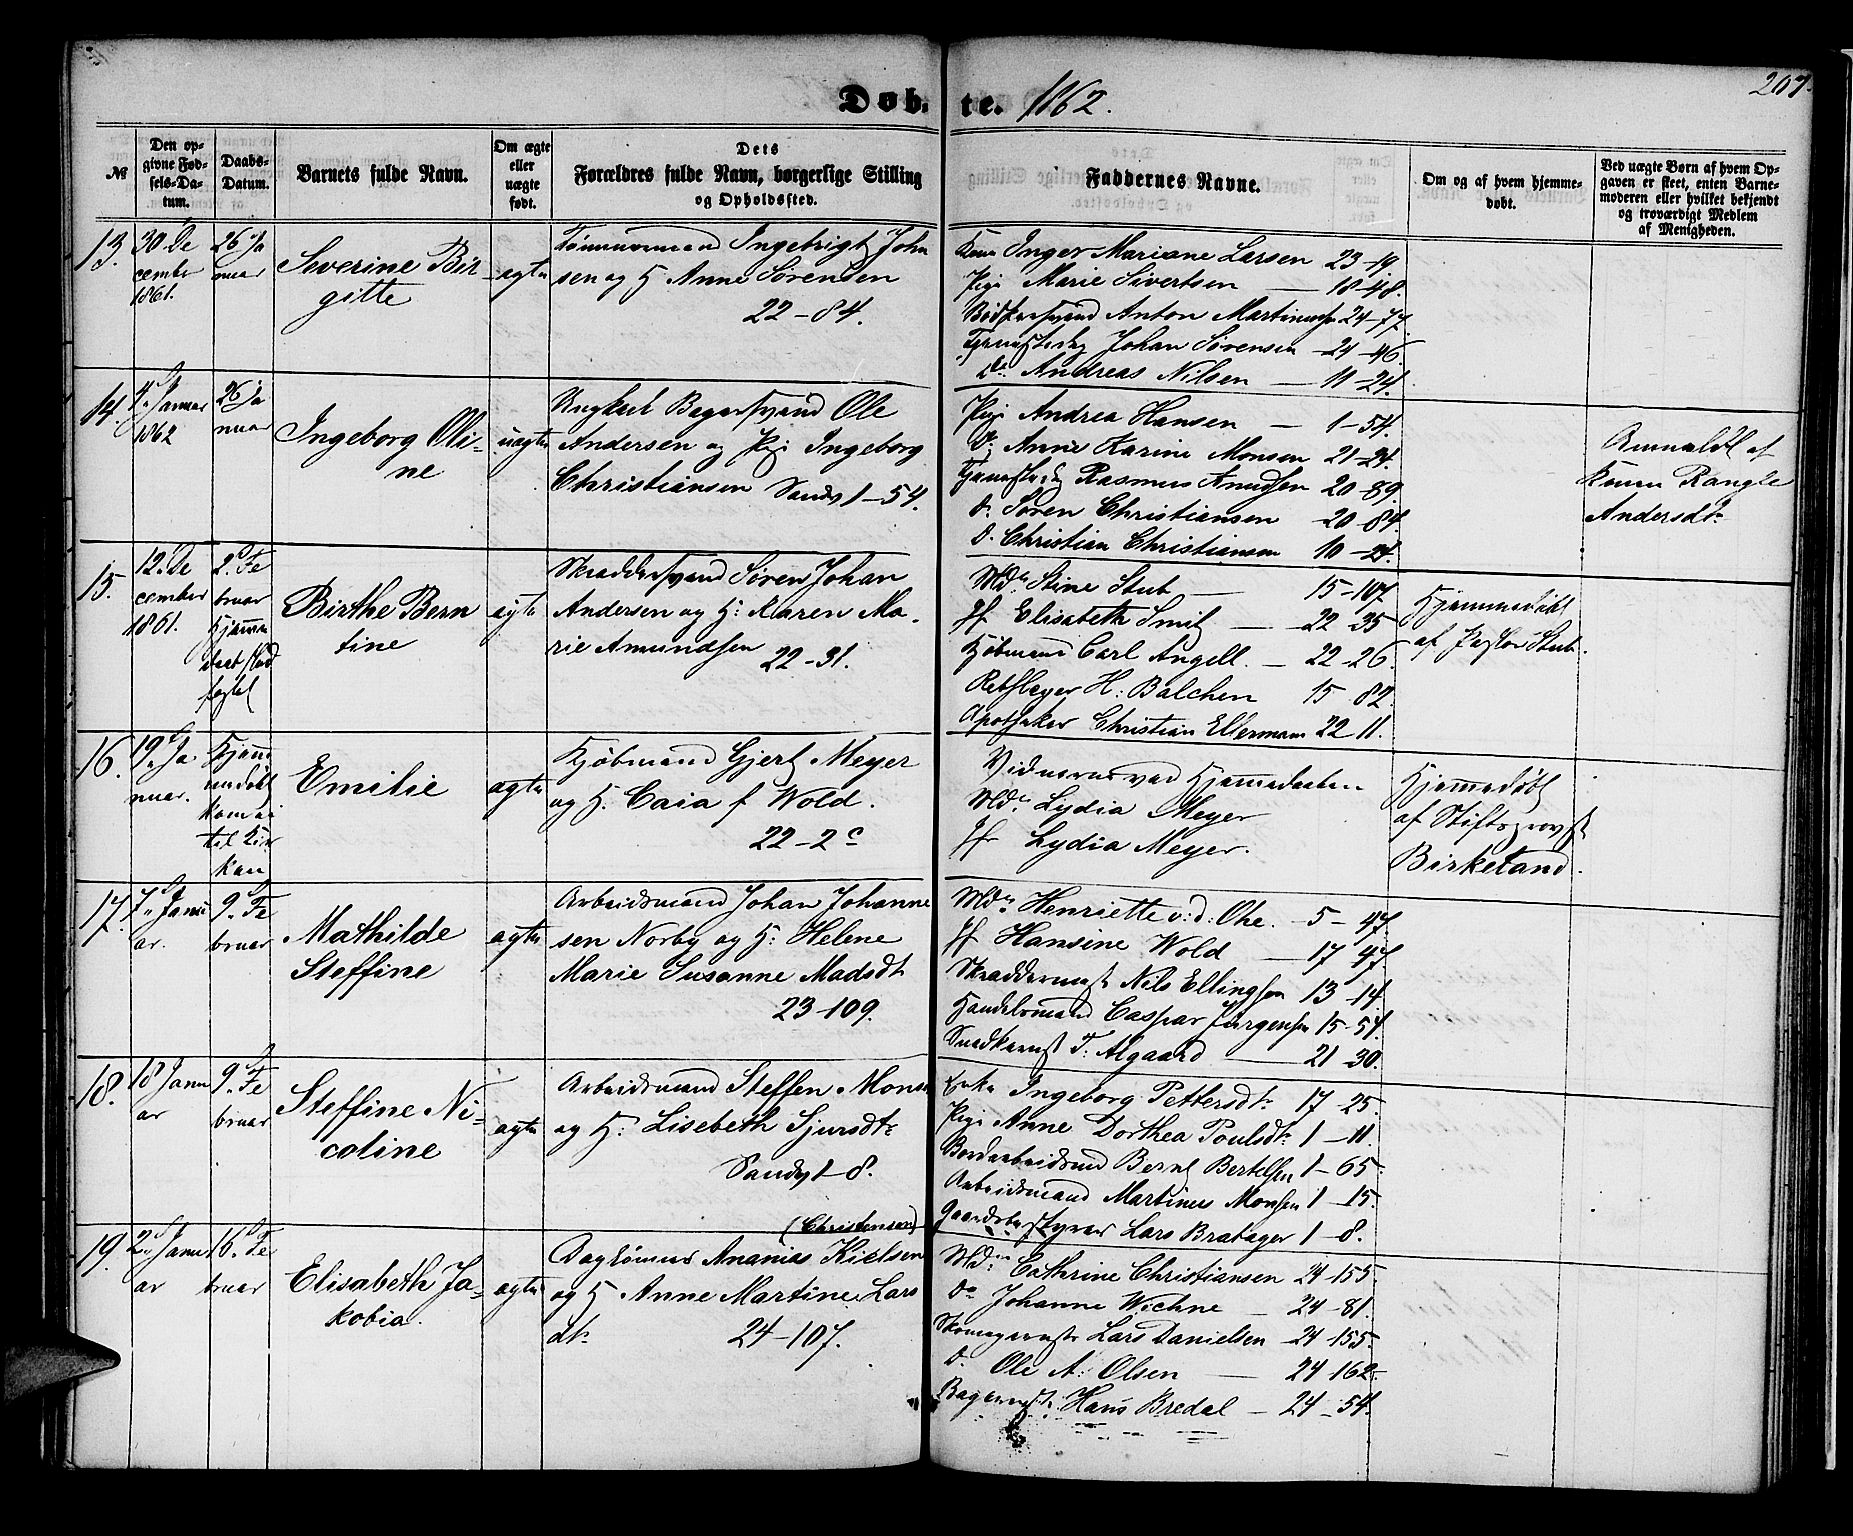 207.
Døb. te. 1862.
№
Den opgivne Fødsels-Datum.
Daabs-Datum.
Barnets fulde Navn.
Om ægte eller uægte født.
Dets Forældres fulde Navn, borgerlige Stilling og Opholdssted.
Faddernes Navne.
Om og af hvem hjemmedøbt.
Ved uægte Børn af hvem Opgaven er skeet, enten Barnemoderen eller hvilket bekjendt og troværdigt Medlem af Menigheden.
13.
30. De
cember
1861.
26 Ja
nuar
Severine Bir-
gitte
ægte
Tømmermand Ingebrigt Johan
sen og H. Anne Sørensen
22-84.
Kone Inger Mariane Larsen 23-19
Pige Marie Sivertsen — 18-48.
Bødkersvend Anton Martinusen 24-77.
Tjenestedrg Johan Sørensen 24-46.
Do. Andreas Nilsen — 11-24.
14.
4. Januar
1862
26 Ja
nuar
Ingeborg Oli-
ne
uægte
Ungkarl Bagersvend Ole
Andersen og Pige Ingeborg
Christiansen Sandv 1-54.
Pige Andrea Hansen — 1-54.
D. Anne Karine Monsen 21-24.
Tjenestedrg Rasmus Knudsen 20-89.
d. Søren Christiansen 20-84.
d. Christian Christiansen 10-24.
Anmeldt af
Konen Rangle
Andersdtr
15.
12. De
cember
1861.
2. Fe
bruar
Hjemme
daab stad
fæstet
Birthe Bern
tine
ægte
Skræddersvend Søren Johan
Andersen og H: Karen Ma-
rie Amundsen 22-31.
Md. Stine Stub — 15-107.
Jf Elisabeth Smit — 22-35
Kjøbmand Carl Angell. — 22-26
Rebslager H: Balchen 15-82.
Apotheker Christian Ellerman 22 11.
Hjemmedøbt
af Pastor Stub.
16.
19. Ja
nuar.
Hjem
medøbt
kom ei
til Kir
ken
Emilie
ægte
Kjøbmand Gjert Meyer
og H. Caia f Wold.
22-2c
Vidnerne ved Hjemmedaaben
Md. Lydia Meyer
Jf Lydia Meyer.
Hjemmedøbt
af Stiftsprovst
Birkeland.
17.
7. Janu
ar.
9. Fe
bruar
Mathilde
Steffine
ægte
Arbeidsmand Johan Johanne
sen Norby og H: Helene
Marie Susanne Madsdtr
23-109.
Md. Henriette v: d: Ohe. 5-47
Jf Hansine Wold — 17 47.
Skræddermstr Nils Ellingsen 13-14.
Handelsmand Caspar Jürgensen 15-54.
Snedkermst T: Algaard — 21-30.
18.
18 Janu
ar
9. Fe
bruar
Steffine Ni-
coline
ægte
Arbeidsmand Steffen Monsen
og H: Lisebeth Sjursdtr
Sandv 1-8.
Enke Ingeborg Pettersdtr. 17-25.
Pige Anne Dorthea Poulsdtr. 1-11.
Bordarbeidsmd Bernt Bertelsen 1-65.
Arbeidsmand Martinus Monsen 1-15.
Gaardsbestyrer Lars Bratager 1-8.
19.
2. Janu
ar
16. Fe
bruar
Elisabeth Ja-
kobia.
ægte
(Christensen)
Daglønner Ananias Kielsen
og H Anne Martine Lars
dtr. 24-107.
Md. Cathrine Christiansen 24-155.
Do Johanne Wichne — 24-81.
Skomagermstr Lars Danielsen 24-155.
d. Ole A. Olsen — 24 162.
Bagermstr. Hans Bredal — 24-54.